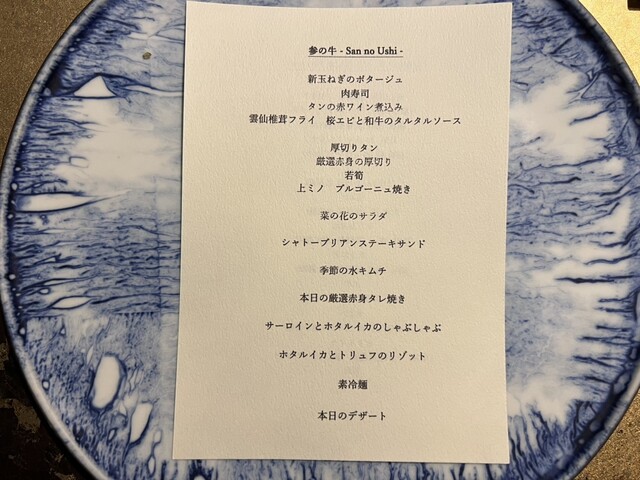 参の牛 - San no Ushi -
新玉ねぎのポタージュ
肉寿司
タンの赤ワイン煮込み
雲仙椎茸フライ　桜エビと和牛のタルタルソース
厚切りタン
厳選赤身の厚切り
若筍
上ミノ　ブルゴーニュ焼き
菜の花のサラダ
シャトーブリアンステーキサンド
季節の水キムチ
本日の厳選赤身タレ焼き
サーロインとホタルイカのしゃぶしゃぶ
ホタルイカとトリュフのリゾット
素冷麺
本日のデザート